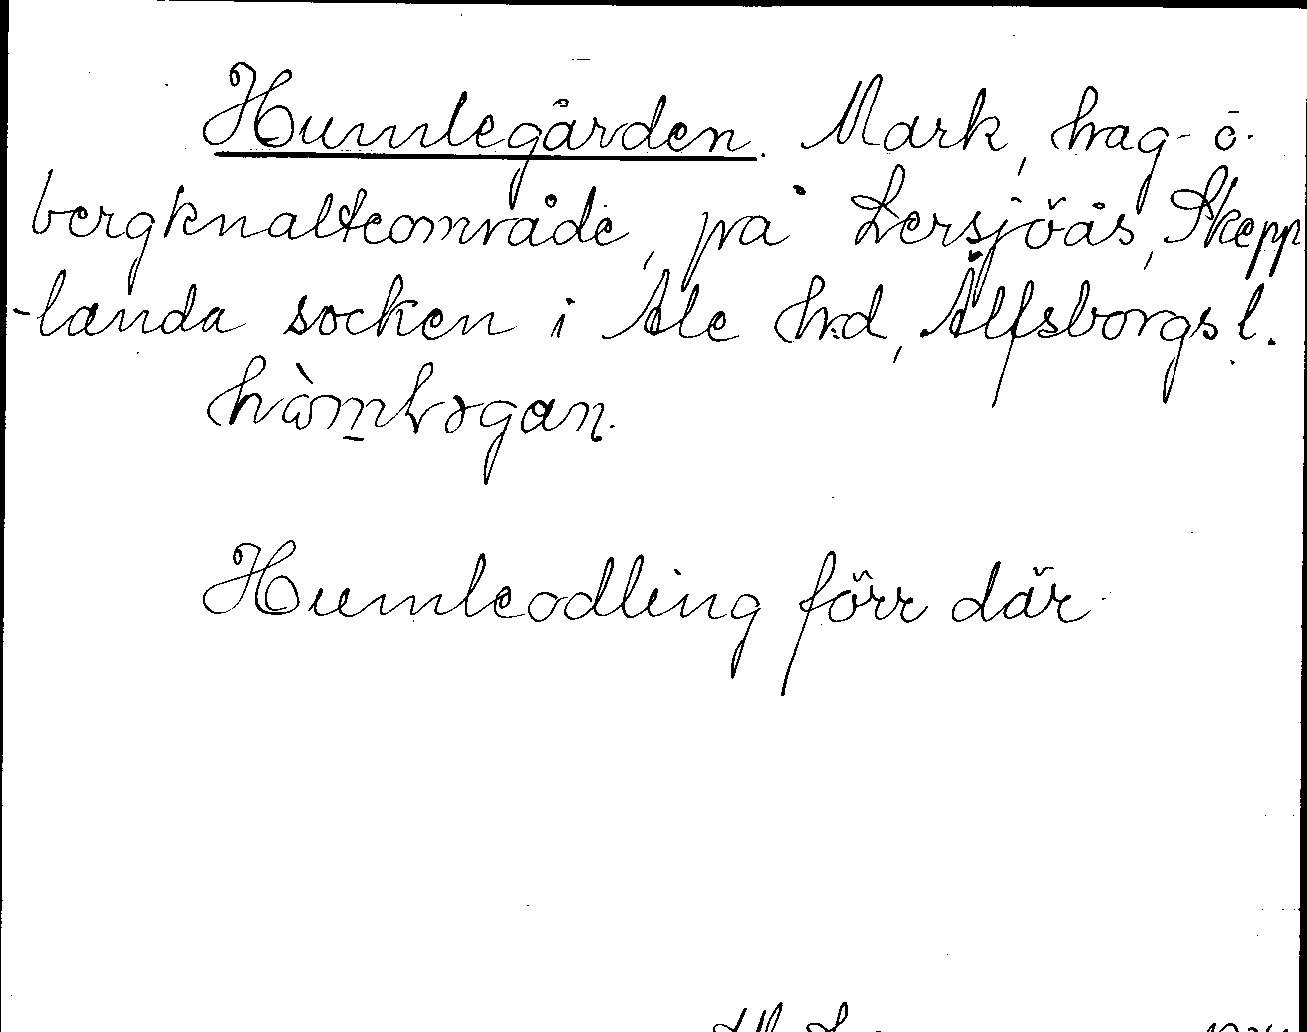 Humlegården. Mark, hag- o.
bergknalteområde, på Lersjöås, Skepp
-landa socken i Ale hd, Älfsborgs l.
Humleodling förr där